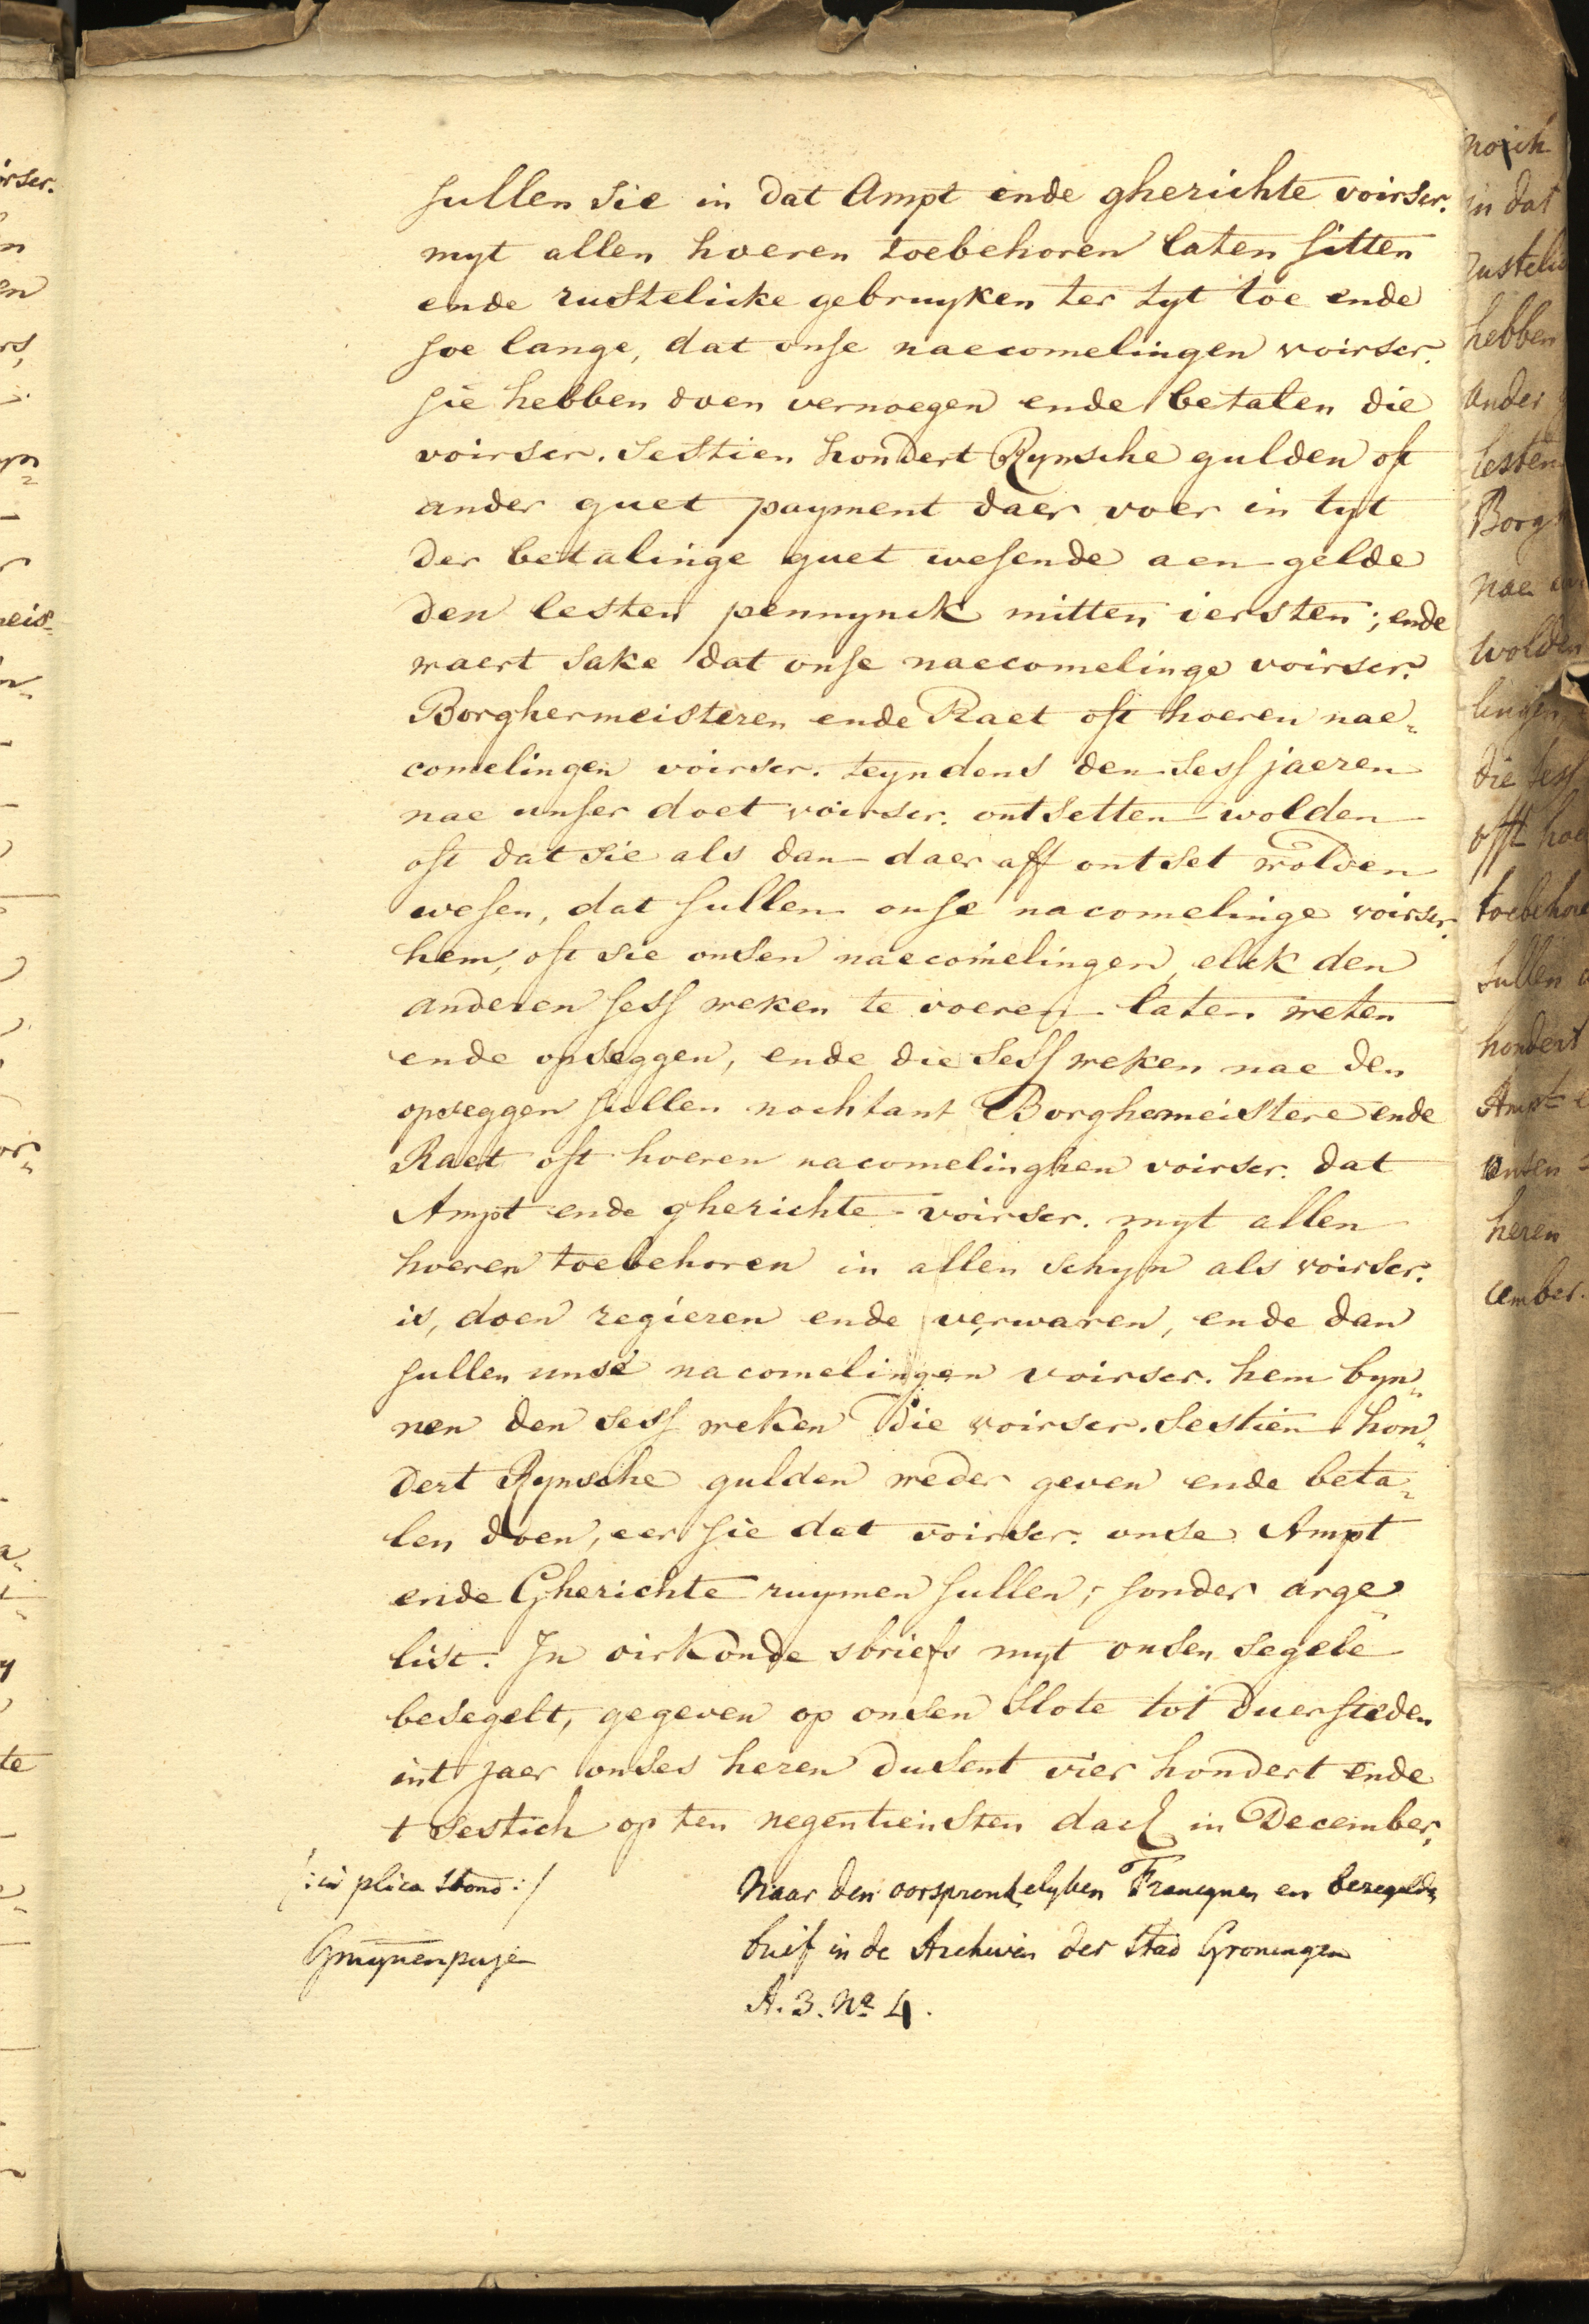 sullen sie in dat Ampt ende gherichte voirscr.
myt allen hoeren toebehoren laten sitten
ende rustelicke gebruyken ter tyt toe ende
soe lange, dat onse naecomelingen voirscr.
sie hebben doen vernoegen ende betalen die
voirscr. sestien hondert Rynsche gulden oft
ander guet payment daer voer in tyt
der betalinge guet wesende aen gelde
den lesten pennynck mitten iersten; ende
waert sake dat onse naecomelinge voirscr.
Borghermeisteren ende Raet oft hoeren nae„
comelingen voirscr. teyndens den sess jaeren
nae unser doet voirscr. ontsetten wolden
oft dat sie als dan daer aff ontset wolden
wesen, dat sullen onse nacomelinge voirscr.
hem, oft sie onsen naecomelingen, elck den
anderen sess weken te voeren laten weten
ende opseggen, ende die sess weken nae den
opseggen sullen nochtant Borghemeistere ende
Raet oft hoeren nacomelinghen voirscr. dat
Ampt ende gherichte voirscr. myt allen
hoeren toebehoren in allen schyn als voirscr.
is, doen regieren ende verwaren, ende dan
sullen unse nacomelingen voirscr. hem byn„
nen den sess weken die voirscr. sestien hon„
dert Rynsche gulden weder geven ende beta„
len doen, eer sie dat voirscr. onse Ampt
ende Gherichte ruymen sullen; sonder arge
list. In oirkonde sbriefs myt onsen segele
besegelt, gegeven op onsen slote tot Duersteden
int jaer onses heren dusent vier hondert ende
t sestich op ten negentiensten dach in December.
/:in plica stond:/
Naar den oorspronkelyken Francynen en bezegelde
brief in de Archiven der Stad Groningen
A. 3. No 4.
noch
in dat
rustelic
hebben
ander
lesten
Borg
nae
wolden
lingen
die sess
offt hoe
toebehore
sullen
hondert
Ampt e
onsen
heren
cember.